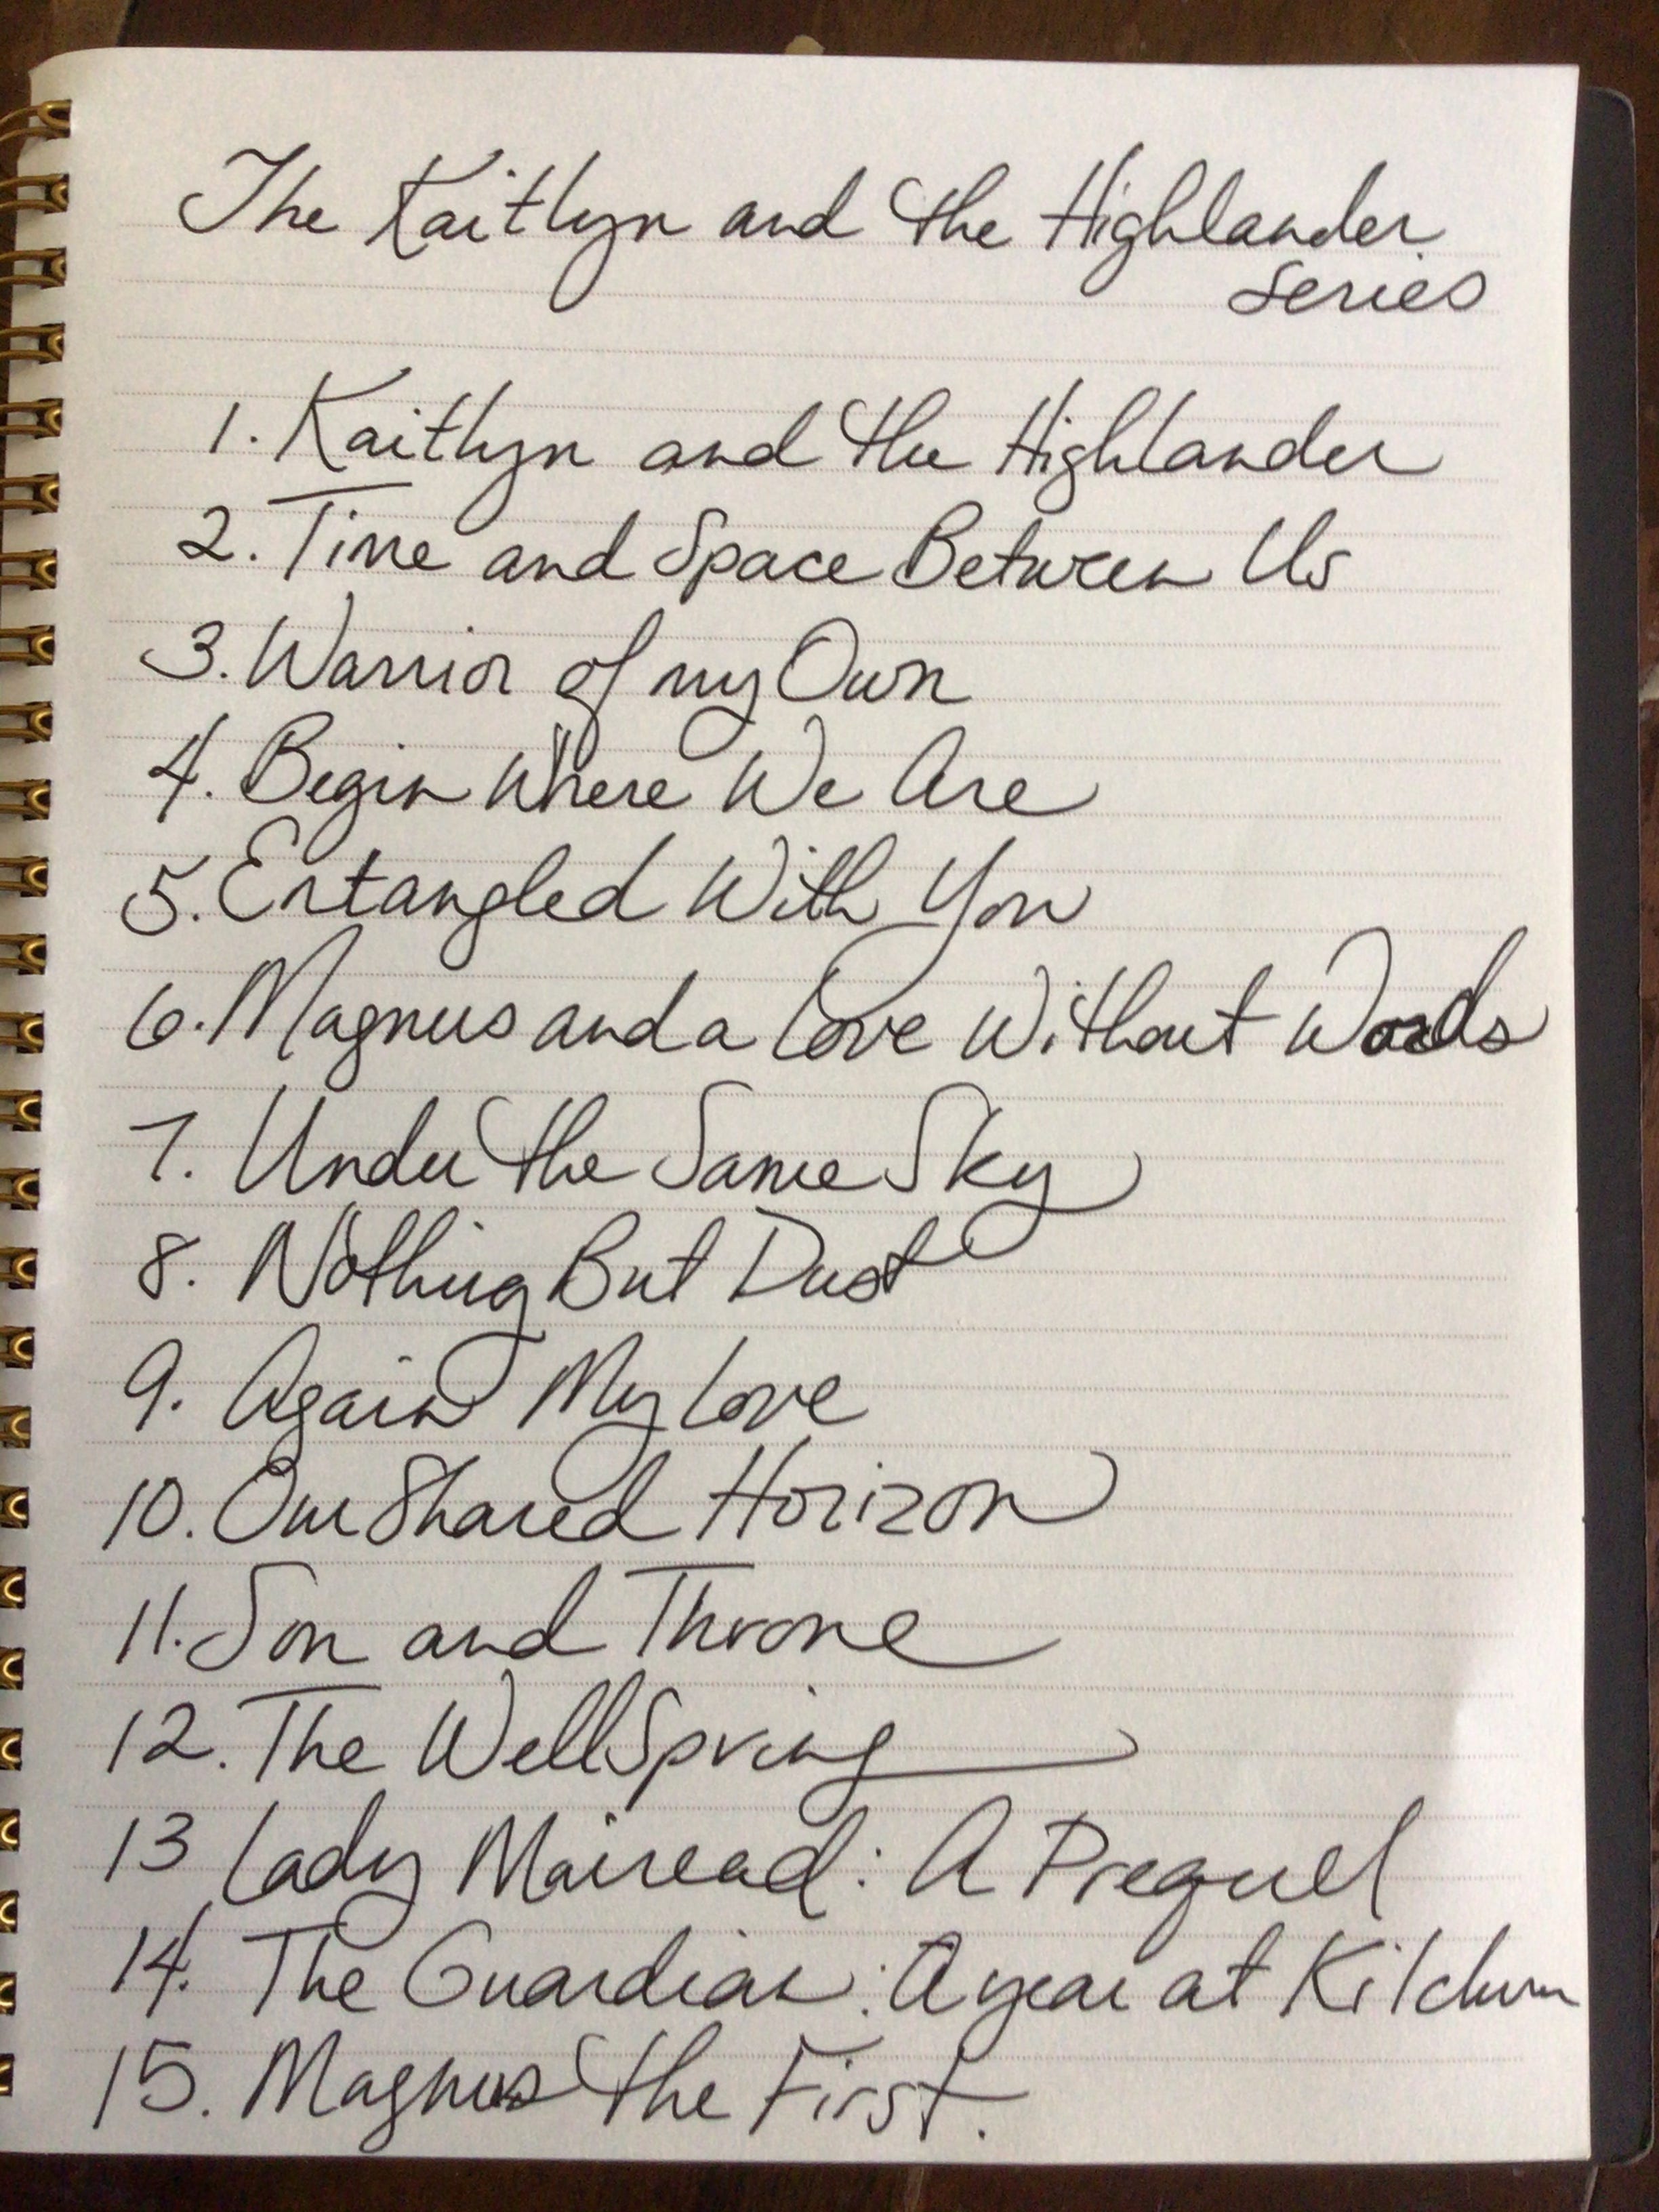 The Kaitlyn and the Highlander
series
1. Kaitlyn and the Highlander
2. Time and Space Between Us
3. Warrior of my Own
4. Begin Where We Are
5. Entangled With You
6. Magnus and a Love Without Words
7. Under the Same Sky
8. Nothing But Dust
9. Again My Love
10. Our Shared Horizon
11. Son and Throne
12. The WellSpring
13 Lady Mairead: A Prequel
14. The Guardian: A year at Kilchurn
15. Magnus the First.